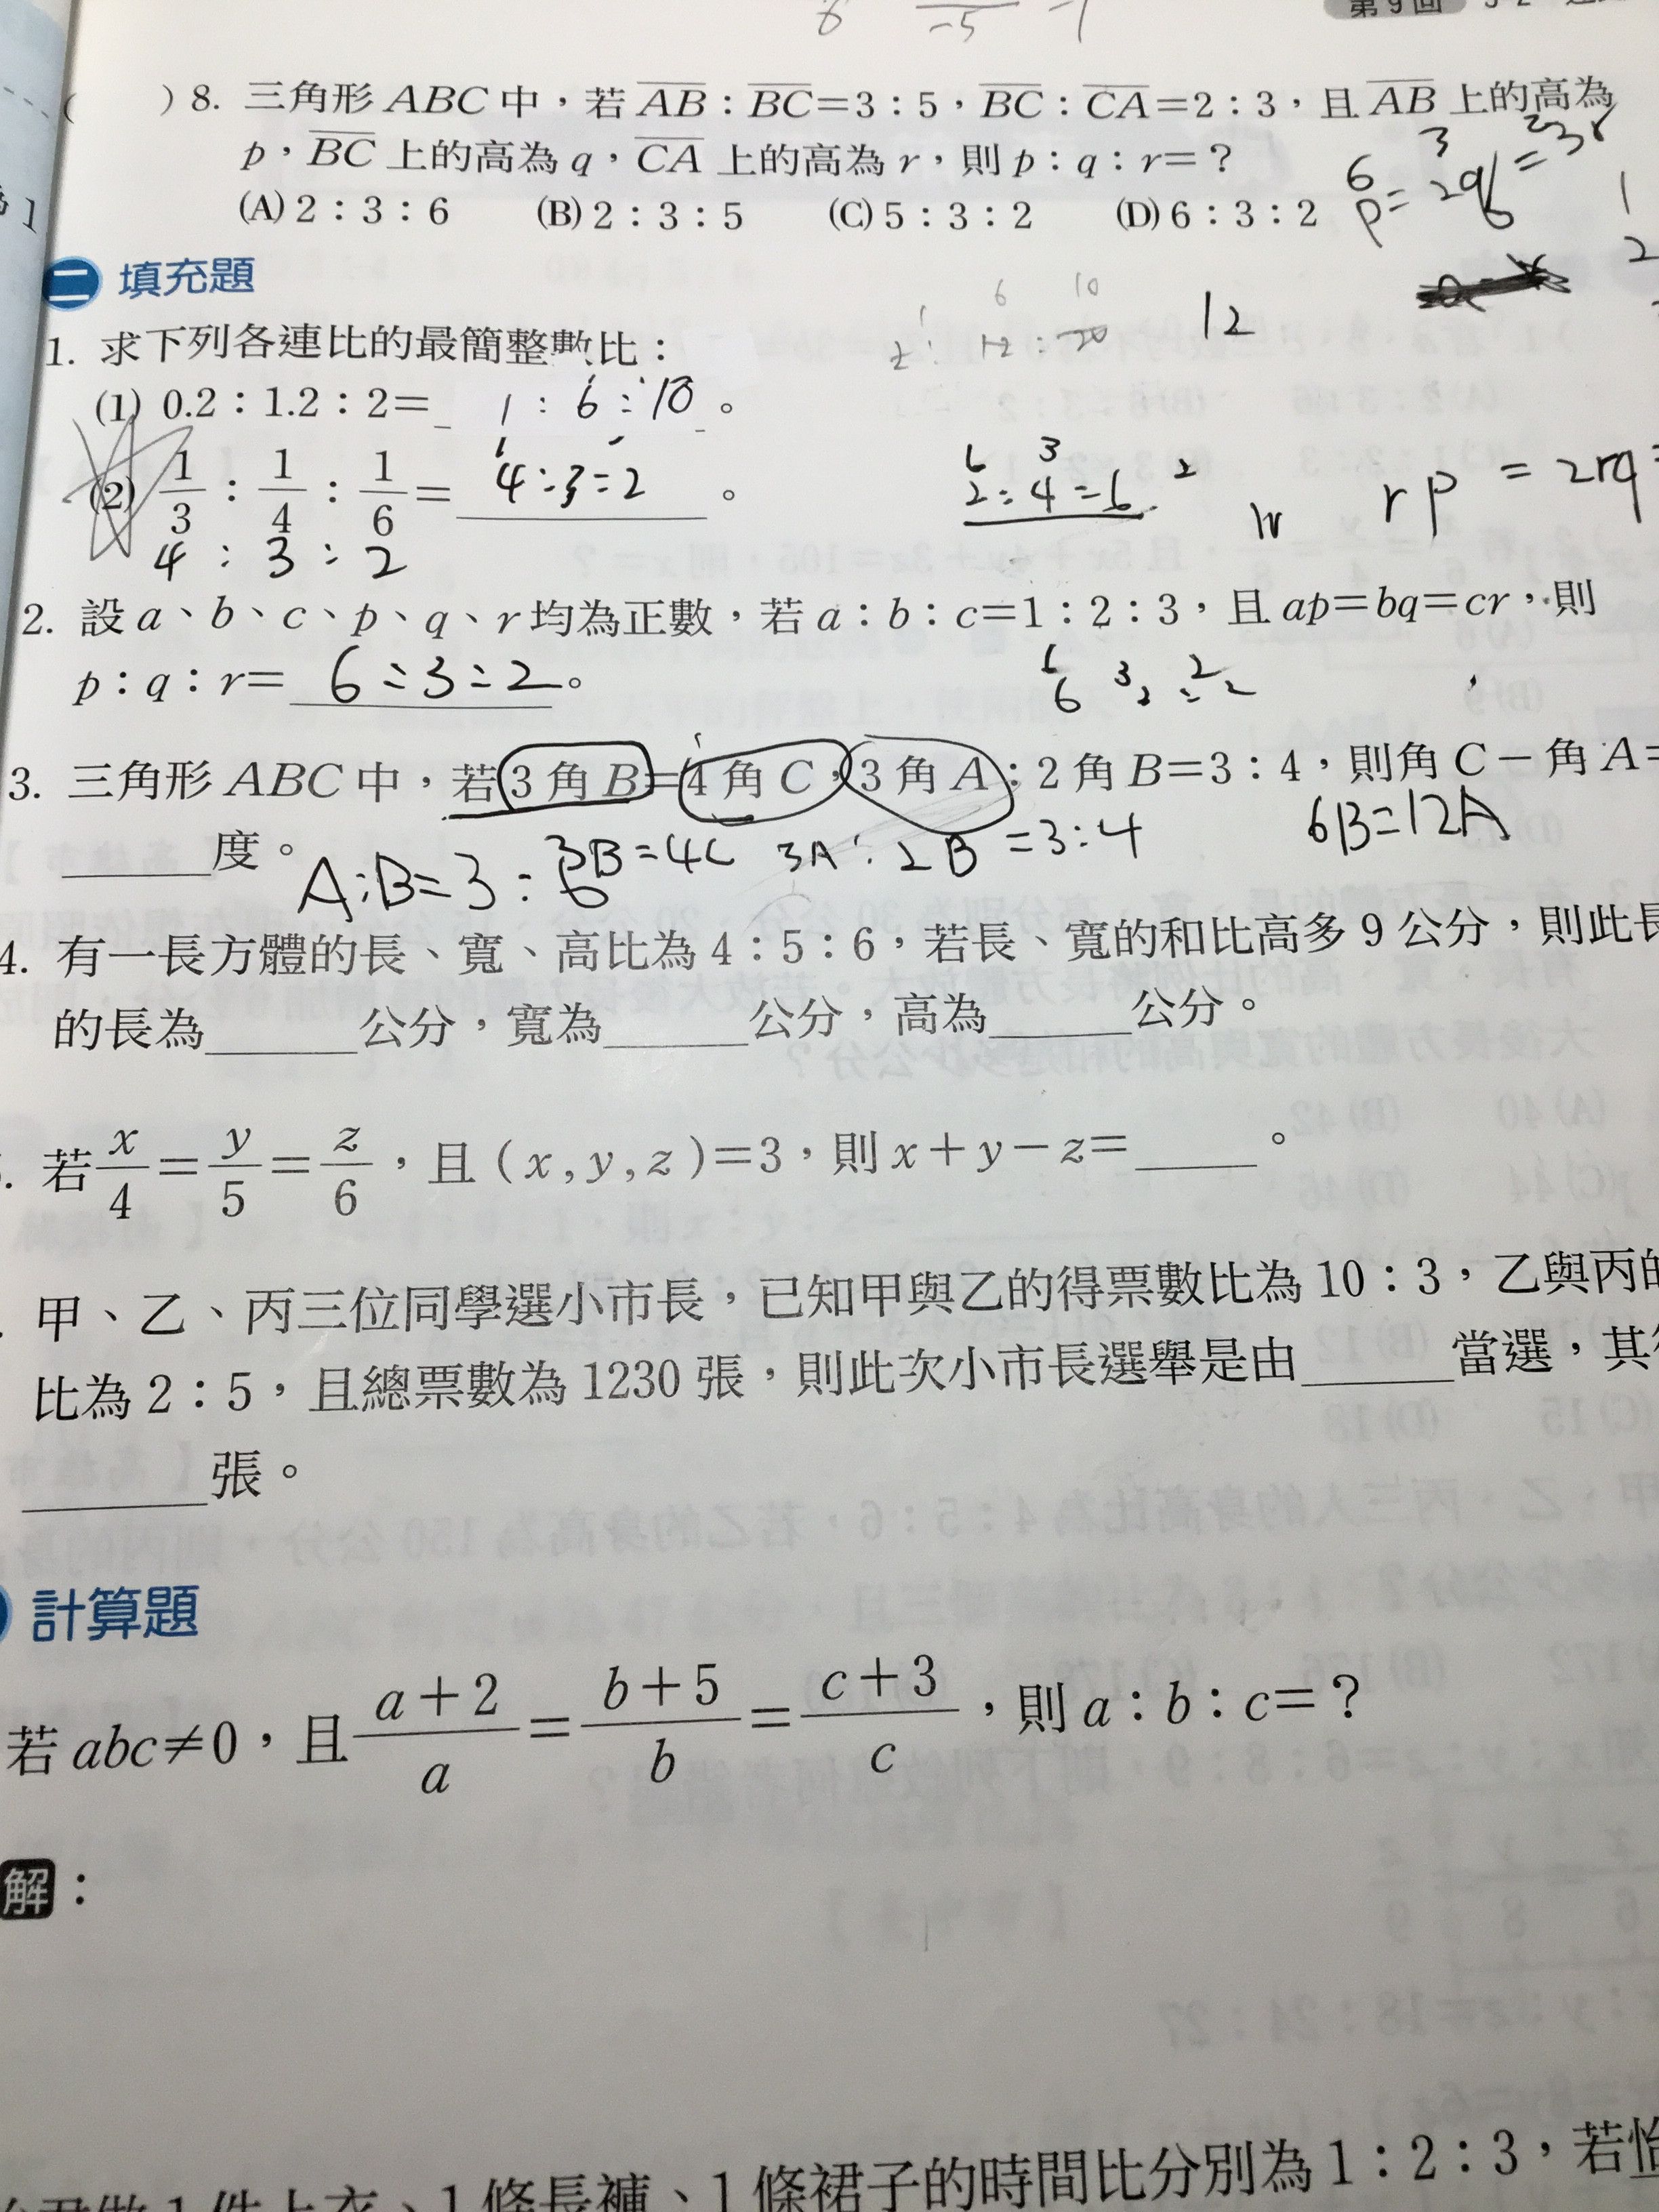 第9回
6 -5 -1
( ) 8. 三角形ABC中，若AB：BC=3：5，BC：CA=2：3，且AB上的高為
p，BC上的高為q，CA上的高為r，則p：q：r=？
(A) 2：3：6 (B) 2：3：5 (C) 5：3：2 (D) 6：3：2
6 3 2
p=2q=3r
1
2
二 填充題
1. 求下列各連比的最簡整數比：
6 10
12：20
12
(1) 0.2：1.2：2= 1：6：10 。
(2) 1/3：1/4：1/6= 4：3：2 。
4：3：2
6 3 2
2：4=6
rp = 2rq
2. 設a、b、c、p、q、r均為正數，若a：b：c=1：2：3，且ap=bq=cr，則
p：q：r= 6：3：2 。
3. 三角形ABC中，若3角B=4角C，3角A：2角B=3：4，則角C－角A=
度。
A：B=3：6 3B=4C 3A：2B=3：4
6B=12A
4. 有一長方體的長、寬、高比為4：5：6，若長、寬的和比高多9公分，則此長
的長為 公分，寬為 公分，高為 公分。
. 若x/4=y/5=z/6，且(x,y,z)=3，則x+y－z= 。
. 甲、乙、丙三位同學選小市長，已知甲與乙的得票數比為10：3，乙與丙的
比為2：5，且總票數為1230張，則此次小市長選舉是由 當選，其
張。
計算題
若abc≠0，且(a+2)/a=(b+5)/b=(c+3)/c，則a：b：c=？
解：
1件上衣、1條長褲、1條裙子的時間比分別為1：2：3，若怡